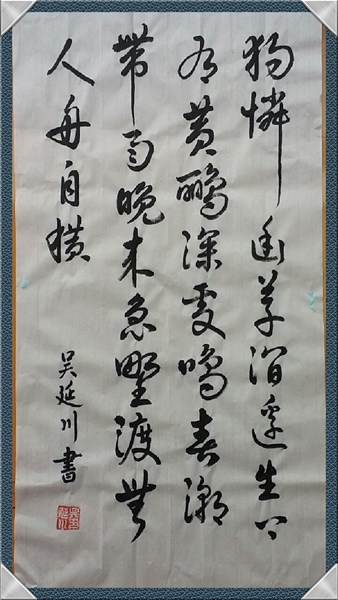 独憐幽草澗邊生上
有黄鸝深處鳴春潮
帶雨晚来急野渡無
人舟自横
吴延川書